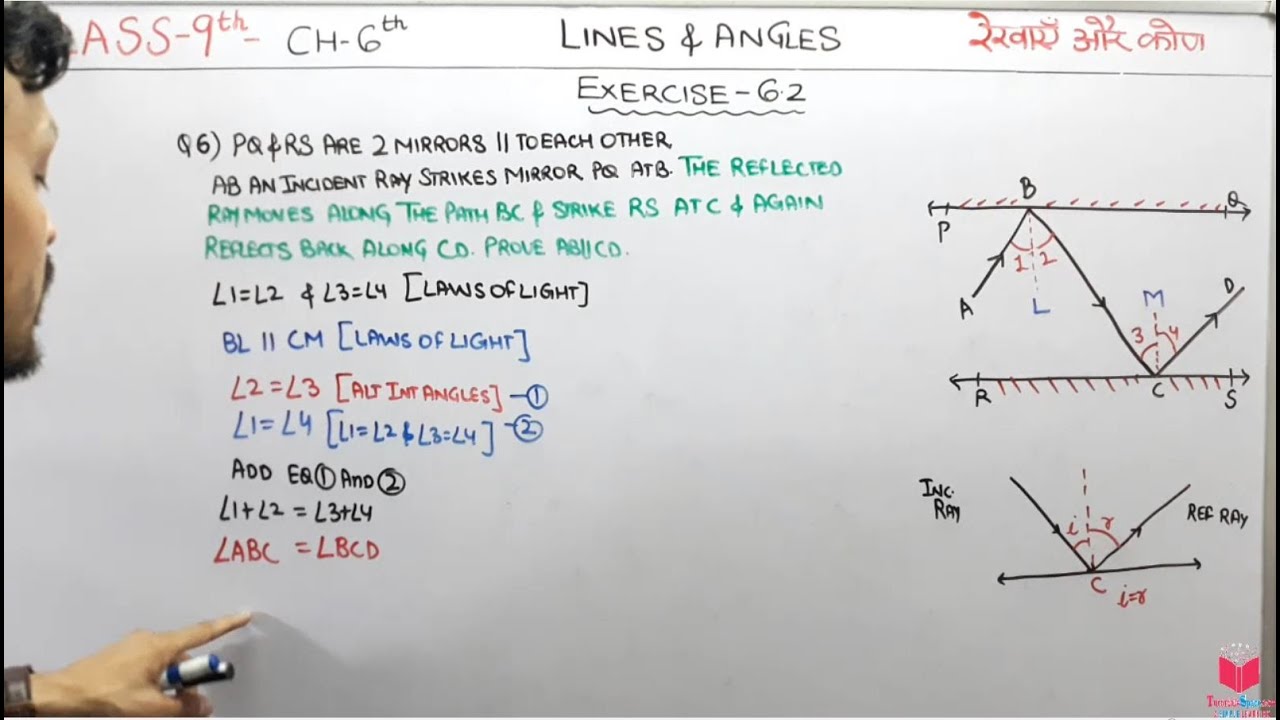 LASS-9th- CH-6th LINES & ANGLES रेखाएँ और कोण
EXERCISE-6.2
Q6) PQ & RS ARE 2 MIRRORS || TO EACH OTHER,
AB AN INCIDENT RAY STRIKES MIRROR PQ AT B. THE REFLECTED
RAY MOVES ALONG THE PATH BC & STRIKE RS AT C & AGAIN
REFLECTS BACK ALONG CD. PROVE AB||CD.
∠1=∠2 & ∠3=∠4 [LAWS OF LIGHT]
BL || CM [LAWS OF LIGHT]
∠2=∠3 [ALT INT ANGLES] -①
∠1=∠4 [∠1=∠2 & ∠3=∠4] -②
ADD EQ ① AND ②
∠1+∠2 = ∠3+∠4
∠ABC = ∠BCD
B
P Q
1 2
A L M D
3 4
R C S
INC. RAY
i r
REF RAY
C
i=r